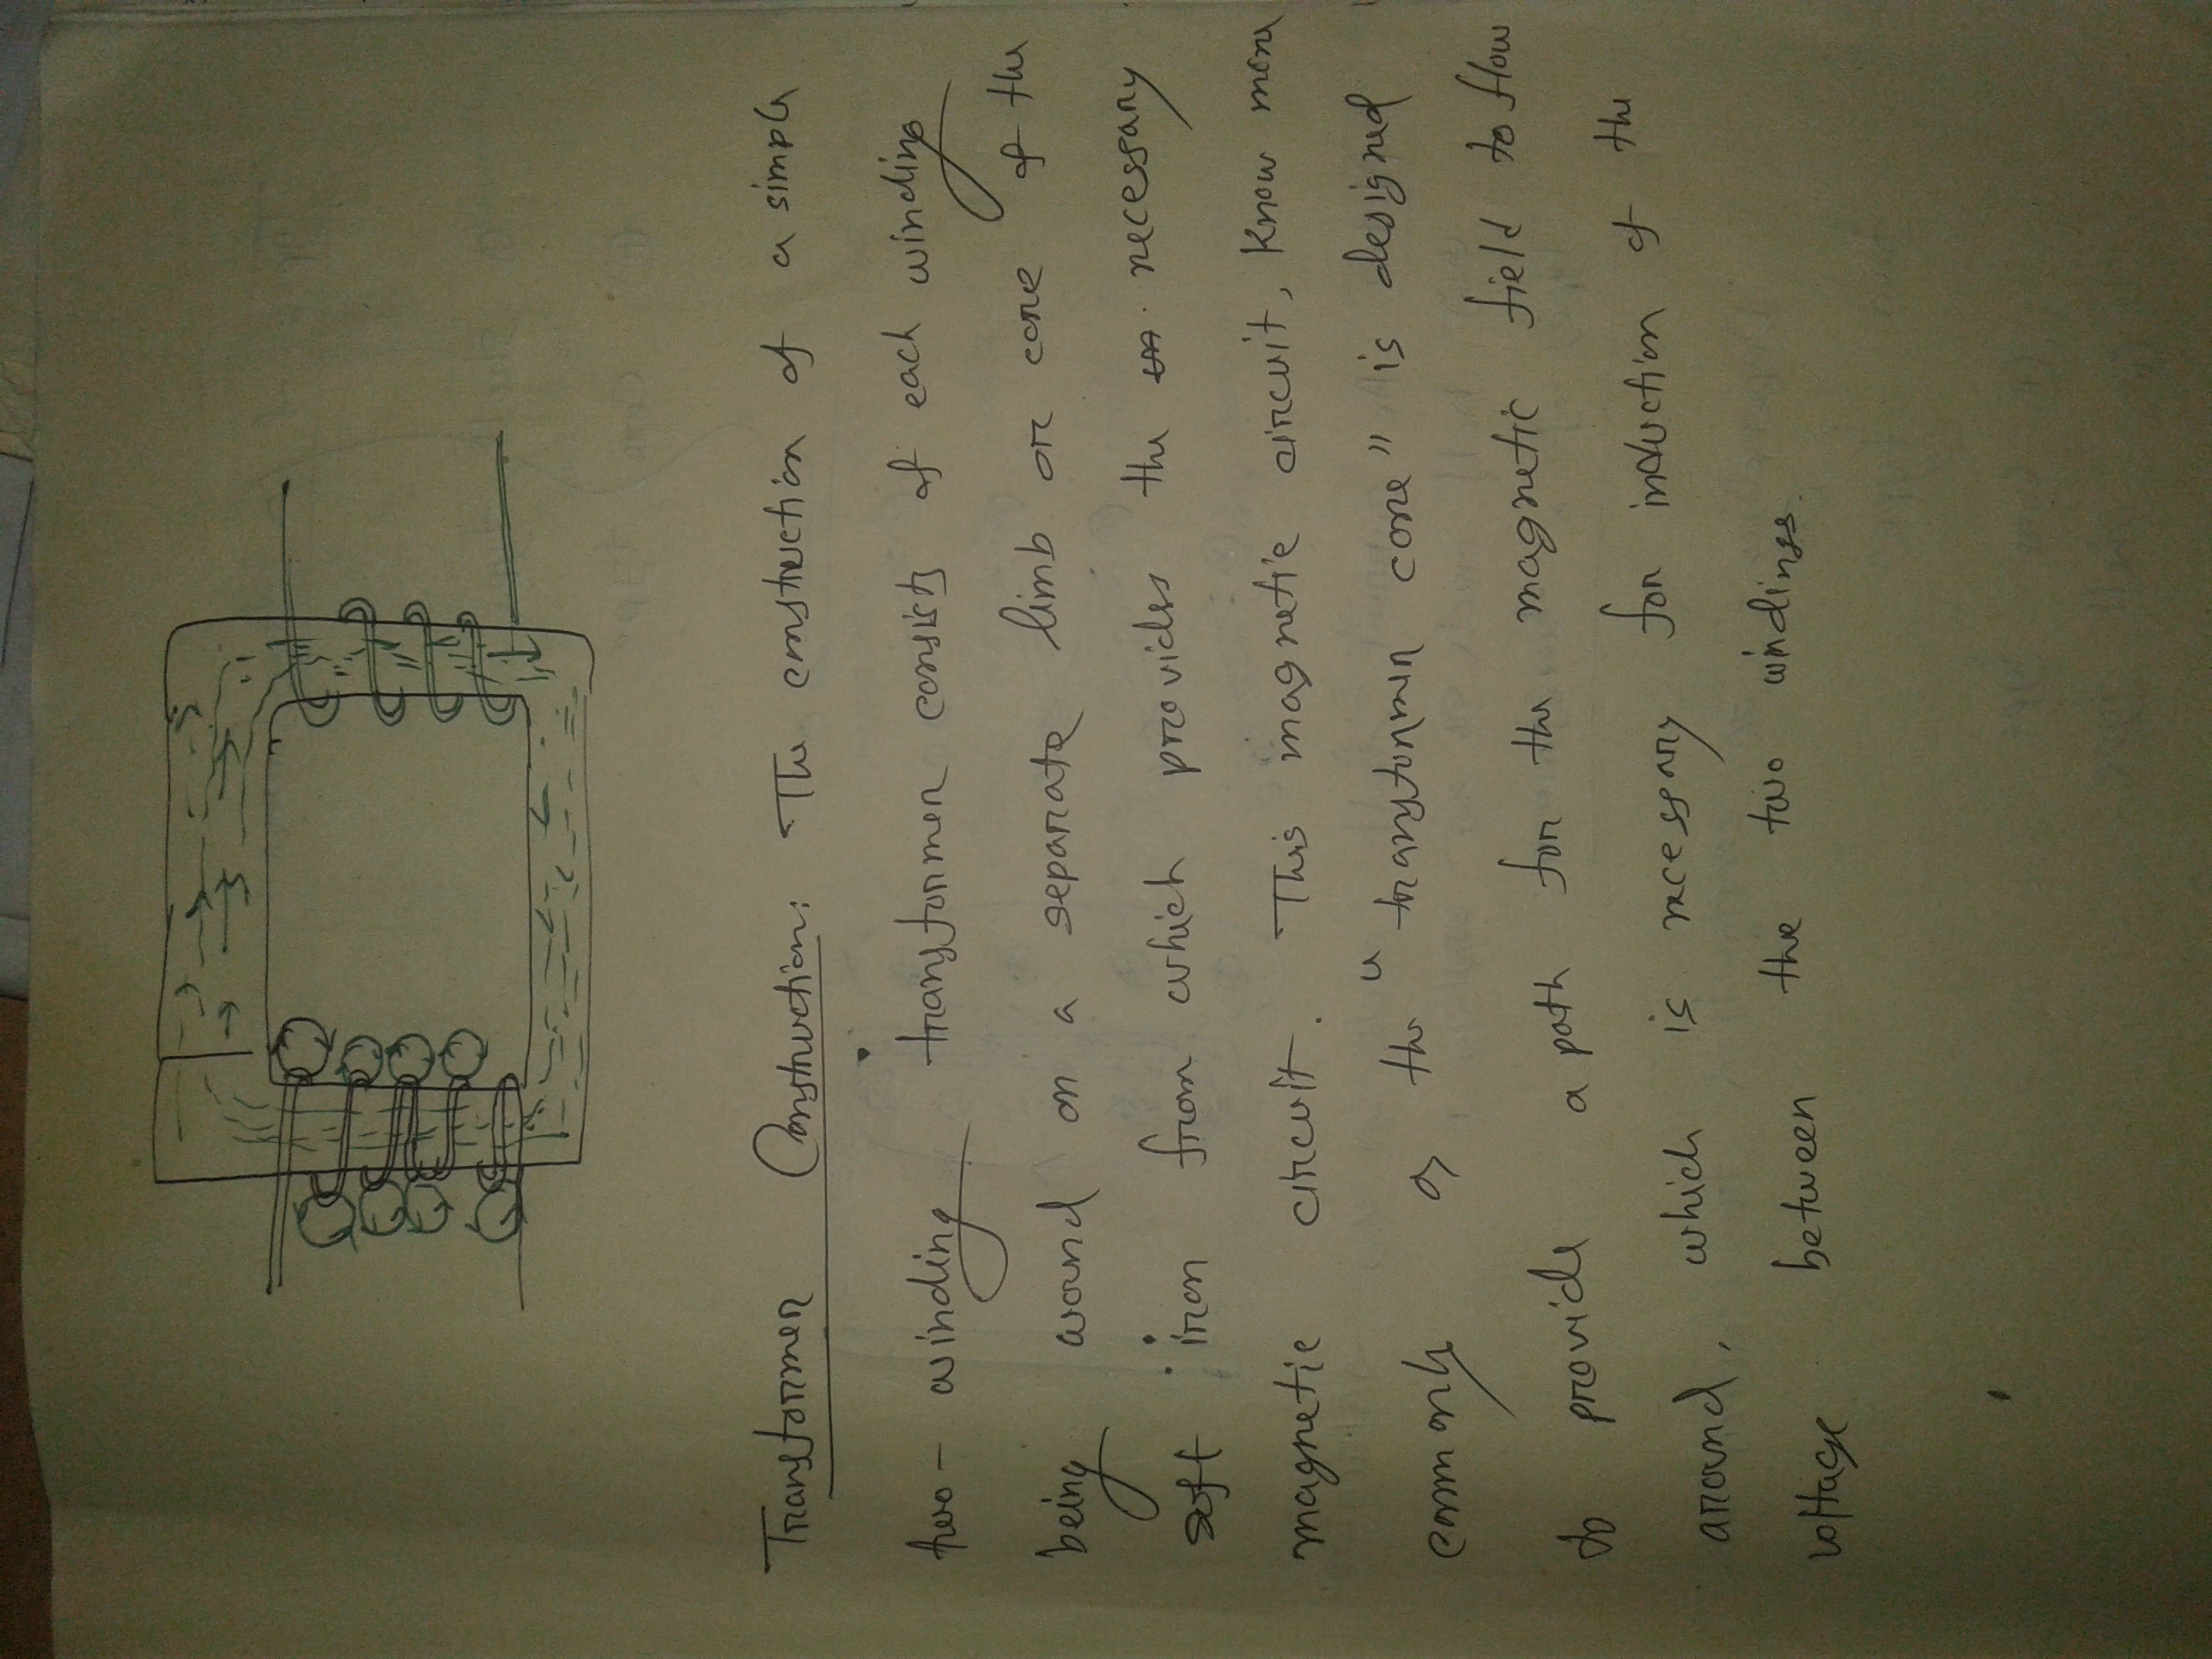 Transformer Construction: The construction of a simple
two- winding transformer consists of each winding
being wound on a separate limb or core of the
soft iron from which provides the necessary
magnetic circuit. This magnetic circuit, know more
commonly as the "transformer core" is designed
to provide a path for the magnetic field to flow
around, which is necessary for induction of the
voltage between the two windings.